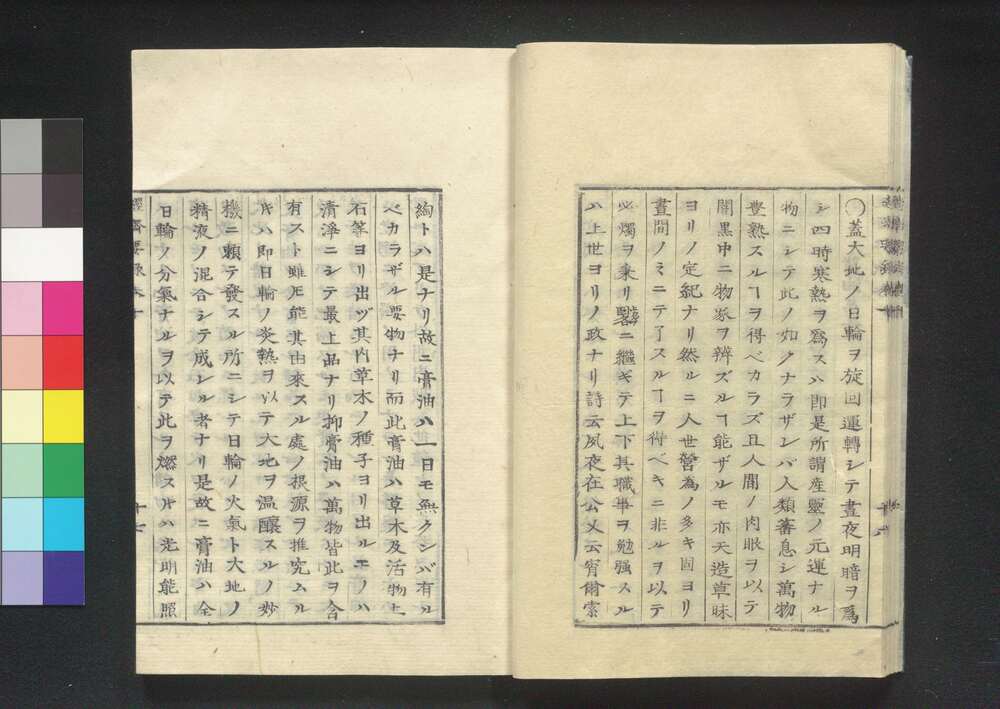 〇蓋大地ノ日輪ヲ旋回運轉シテ晝夜明暗ヲ爲
シ四時寒熱ヲ爲スハ即是所謂産靈ノ元運ナル
物ニシテ此ノ如クナラザレバ人類蕃息シ萬物
豊熟スルヿヲ得ベカラズ且人間ノ肉眼ヲ以テ
闇黒中ニ物ヲ辨ズルヿ能ザルモ亦天造草昧
ヨリノ定紀ナリ然ルニ人世營為ノ多キ固ヨリ
晝間ノミニテ了スルヿヲ得ベキニ非ルヲ以テ
必燭ヲ秉リ晷ニ繼ギテ上下其職事ヲ勉強スル
ハ上世ヨリノ政ナリ詩云夙夜在公又云宵爾索
綯トハ是ナリ故ニ膏油ハ一日モ無クンバ有ル
ベカラザル要物ナリ而此膏油ハ草木及活物土
石等ヨリ出ヅ其内草木ノ種子ヨリ出ルモノハ
清淨ニシテ最上品ナリ抑膏油ハ萬物皆此ヲ含
有スト雖𪜈能其由來スル處ノ根源ヲ推究ムル
キハ即日輪ノ炎熱ヲ以テ大地ヲ温釀スルノ妙
機ニ頼テ發スル所ニシテ日輪ノ火氣ト大地ノ
精液ノ混合シテ成レル者ナリ是故ニ膏油ハ全
日輪ノ分氣ナルヲ以テ此ヲ燃スキハ光明能照